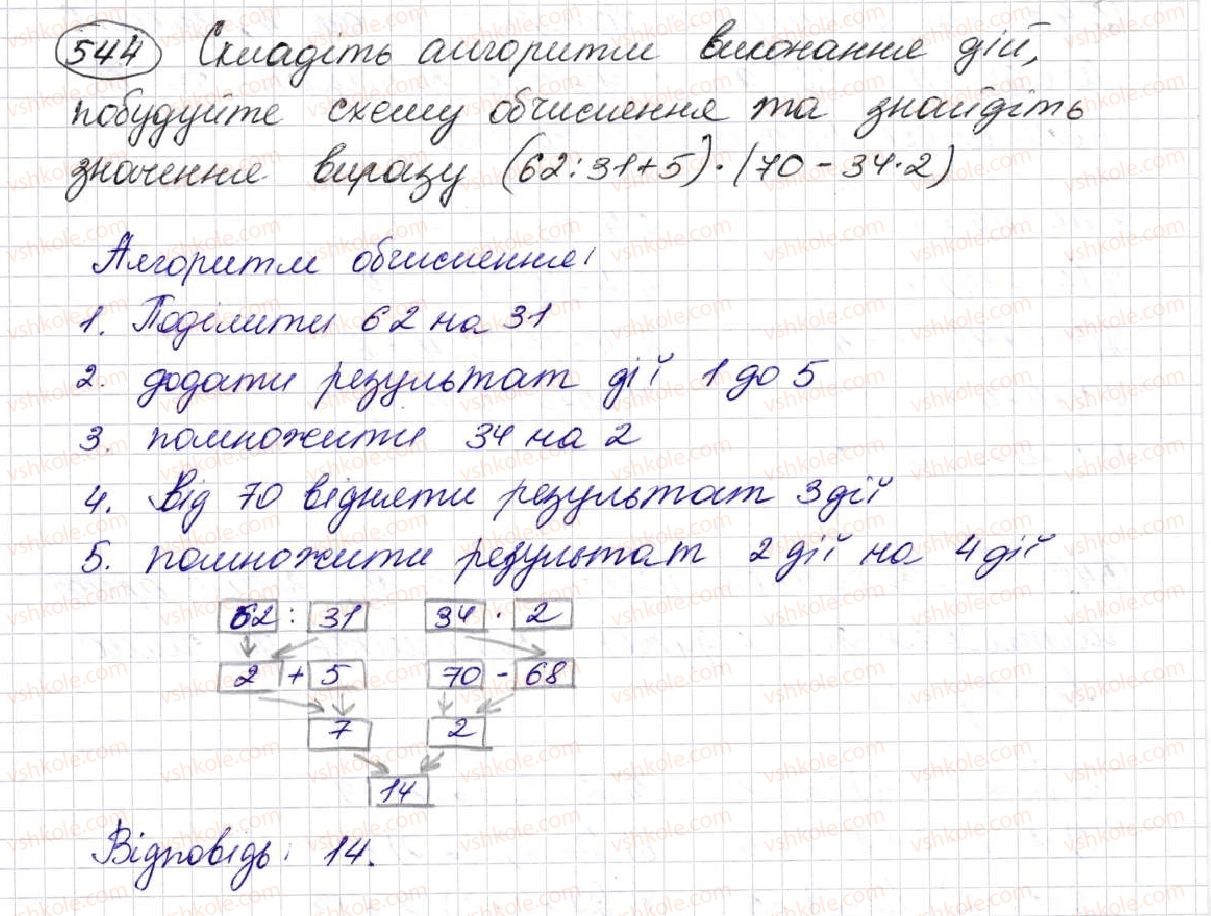 544 Складіть алгоритм виконання дій,
побудуйте схему обчислення та знайдіть
значення виразу (62:31+5)·(70-34·2)
Алгоритм обчислення:
1. Поділити 62 на 31
2. додати результат дії 1 до 5
3. помножити 34 на 2
4. Від 70 відняти результат 3 дії
5. помножити результат 2 дії на 4 дії
62 : 31 34 · 2
2 + 5 70 - 68
7 2
14
Відповідь: 14.